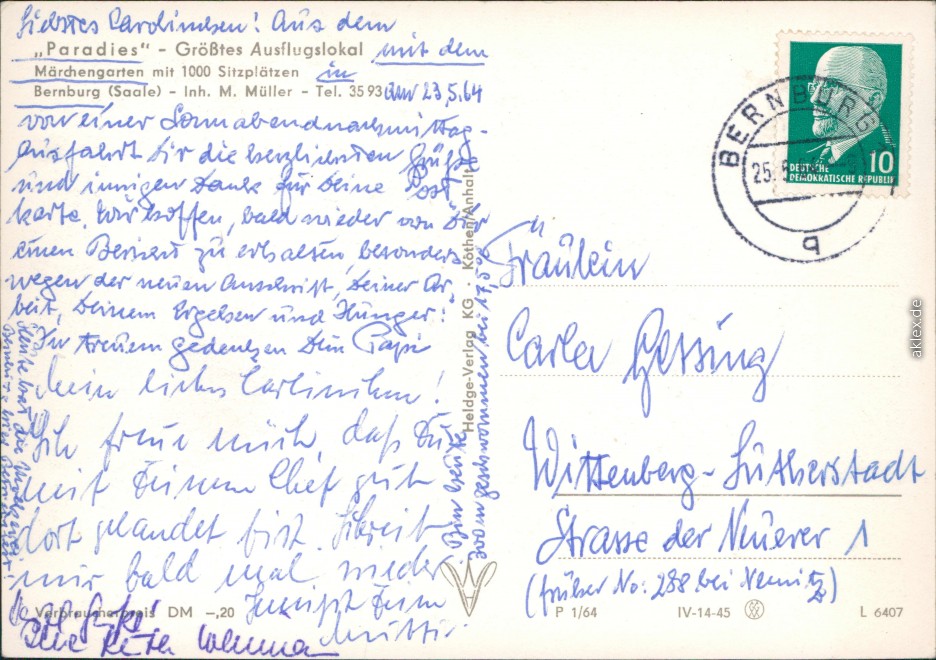 Liebstes Carlinchen! Aus dem
„Paradies“ - Größtes Ausflugslokal mit dem
Märchengarten mit 1000 Sitzplätzen in
Bernburg (Saale) - Inh. M. Müller - Tel. 3593 am 23.5.64
von einer Sonnabendnachmittag-
ausfahrt Dir die herzlichsten Grüße
und innigen Dank für Deine Post-
karte. Wir hoffen, bald wieder von Dir
einen Bericht zu erhalten, besonders
wegen der neuen Anschrift, Deiner Ar-
beit, Deinem Ergehen und Hunger!
In treuem Gedenken Dein Papi
Mein liebes Carlinchen!
Ich freue mich, daß Du
mit Deinem Chef gut
dort gelandet bist. Schreib
mir bald mal wieder.
Innigst Deine
Mutti.
Bin heute
300 m geschwommen bei 17,5°
Verbraucherpreis DM -,20
Heldge-Verlag KG · Köthen/Anhalt
BERNBURG
25.
q
DEUTSCHE
DEMOKRATISCHE REPUBLIK
10
Fräulein
Carla Gessing
Wittenberg-Lutherstadt
Strasse der Neuerer 1
(früher No: 288 bei Nemitz)
P 1/64 IV-14-45 L 6407
akleix.de